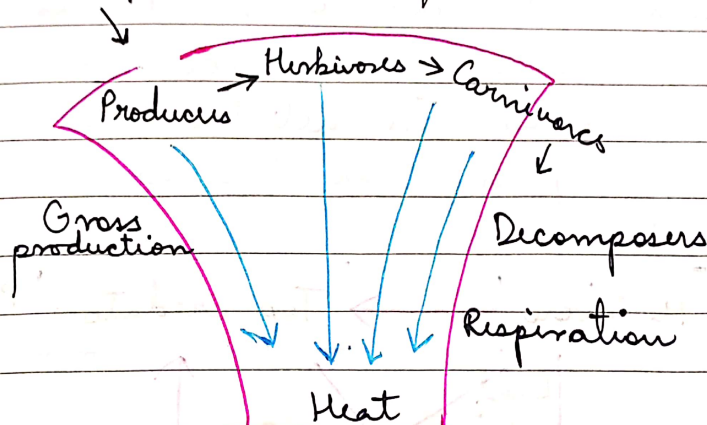 Producers → Herbivores → Carnivores
↓
Gross
production
Decomposers
Respiration
Heat